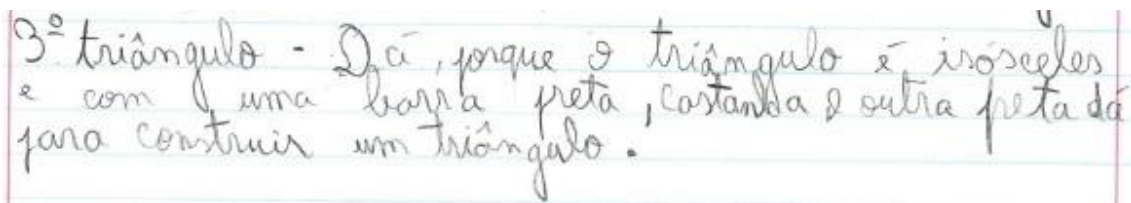 3º triângulo - Dá, porque o triângulo é isósceles
e com uma barra preta, castanha e outra preta dá
para construir um triângulo.